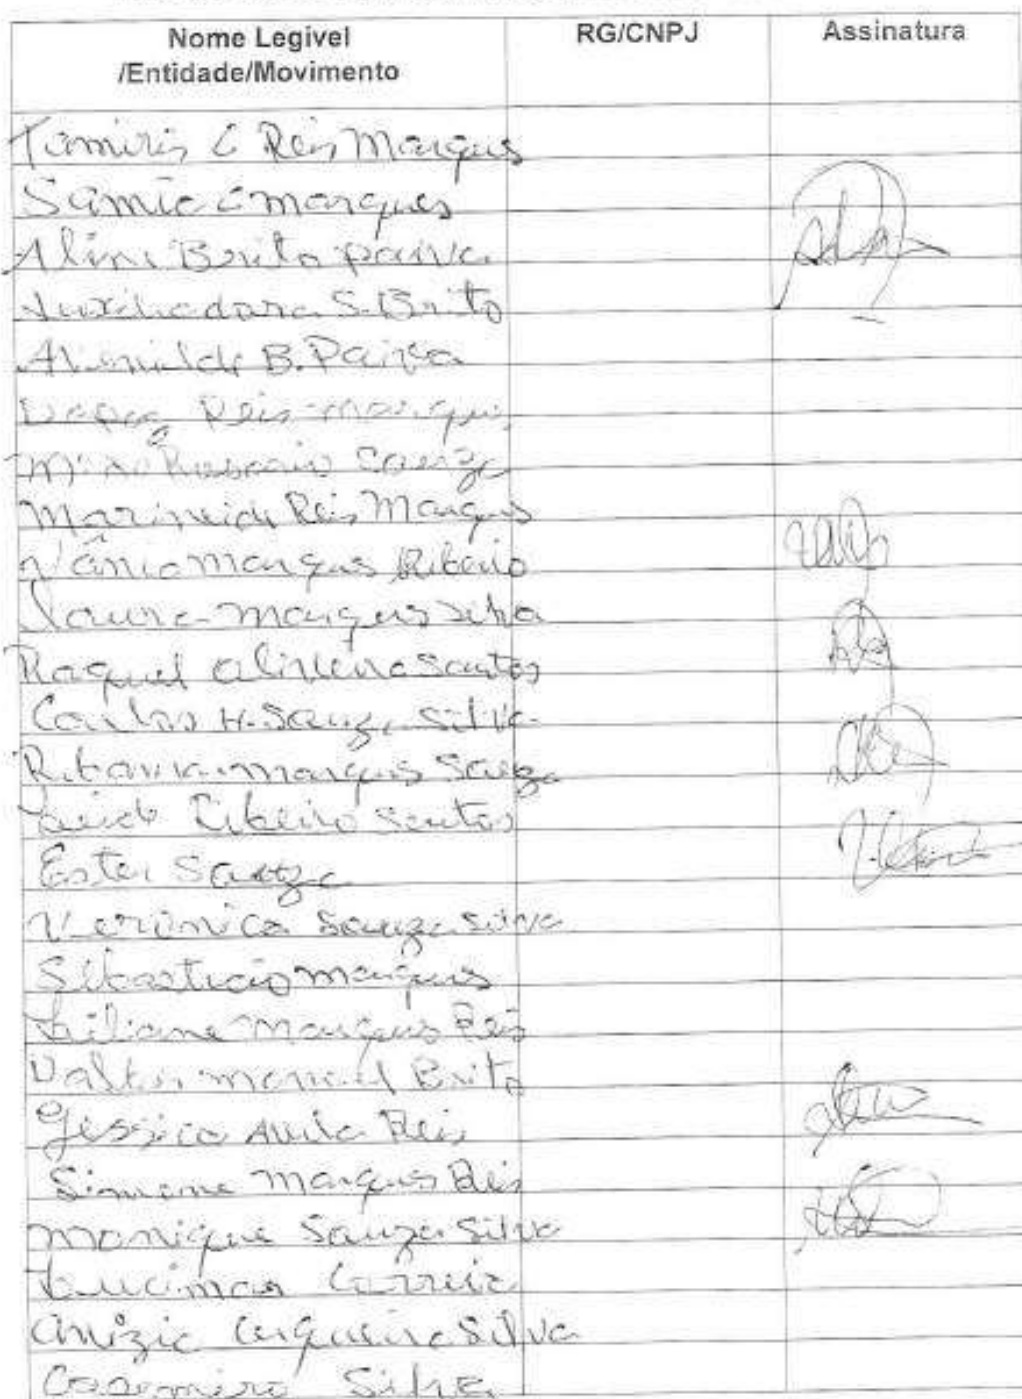 Nome Legivel RG/CNPJ Assinatura
/Entidade/Movimento
Tamiris C Reis Marques
Samia C marques
Alini Brito paiva
Auxiliadora S. Brito
B. Paiva
Reis marques
Rosario Souza
Marineide Reis Marques
Vânia Marques Ribeiro
Laura Marques Silva
Raquel Santos
Carlos H. Souza Silva
marques Souza
Ribeiro Santos
Ester Souza
Verônica Souza Silva
Sebastião marques
Liliane Marques Reis
Valter manuel Brito
Gessica Avila Reis
Simone Marques Reis
Monique Souza Silva
Lucimar Correia
Cerqueira Silva
Casemiro Silva